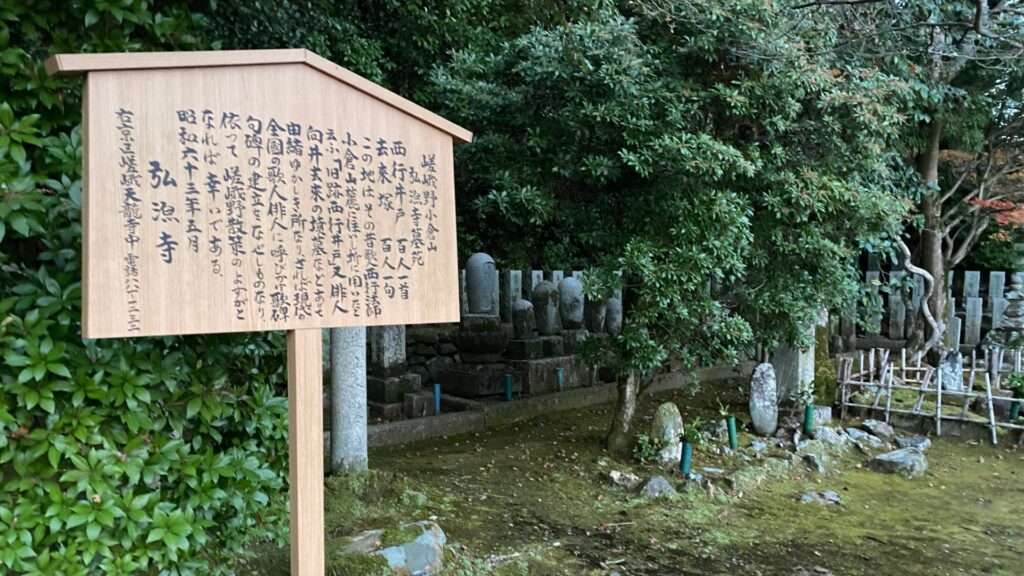 嵯峨野小倉山
弘源寺墓苑
西行井戸 百人一首
去来塚 百人一句
この地はその昔歌人西行法師
小倉山麓に住し折に用いたと
云ふ「旧跡西行井戸」又俳人
向井去来の墳墓などあって
由緒ゆかしき所なりされば現代
全国の歌人俳人に呼びかけ歌碑
句碑の建立をなせしものなり、
依って嵯峨野散策のよすがと
なれば幸いである。
昭和六十三年五月
弘源寺
右京区嵯峨天龍寺中 電話